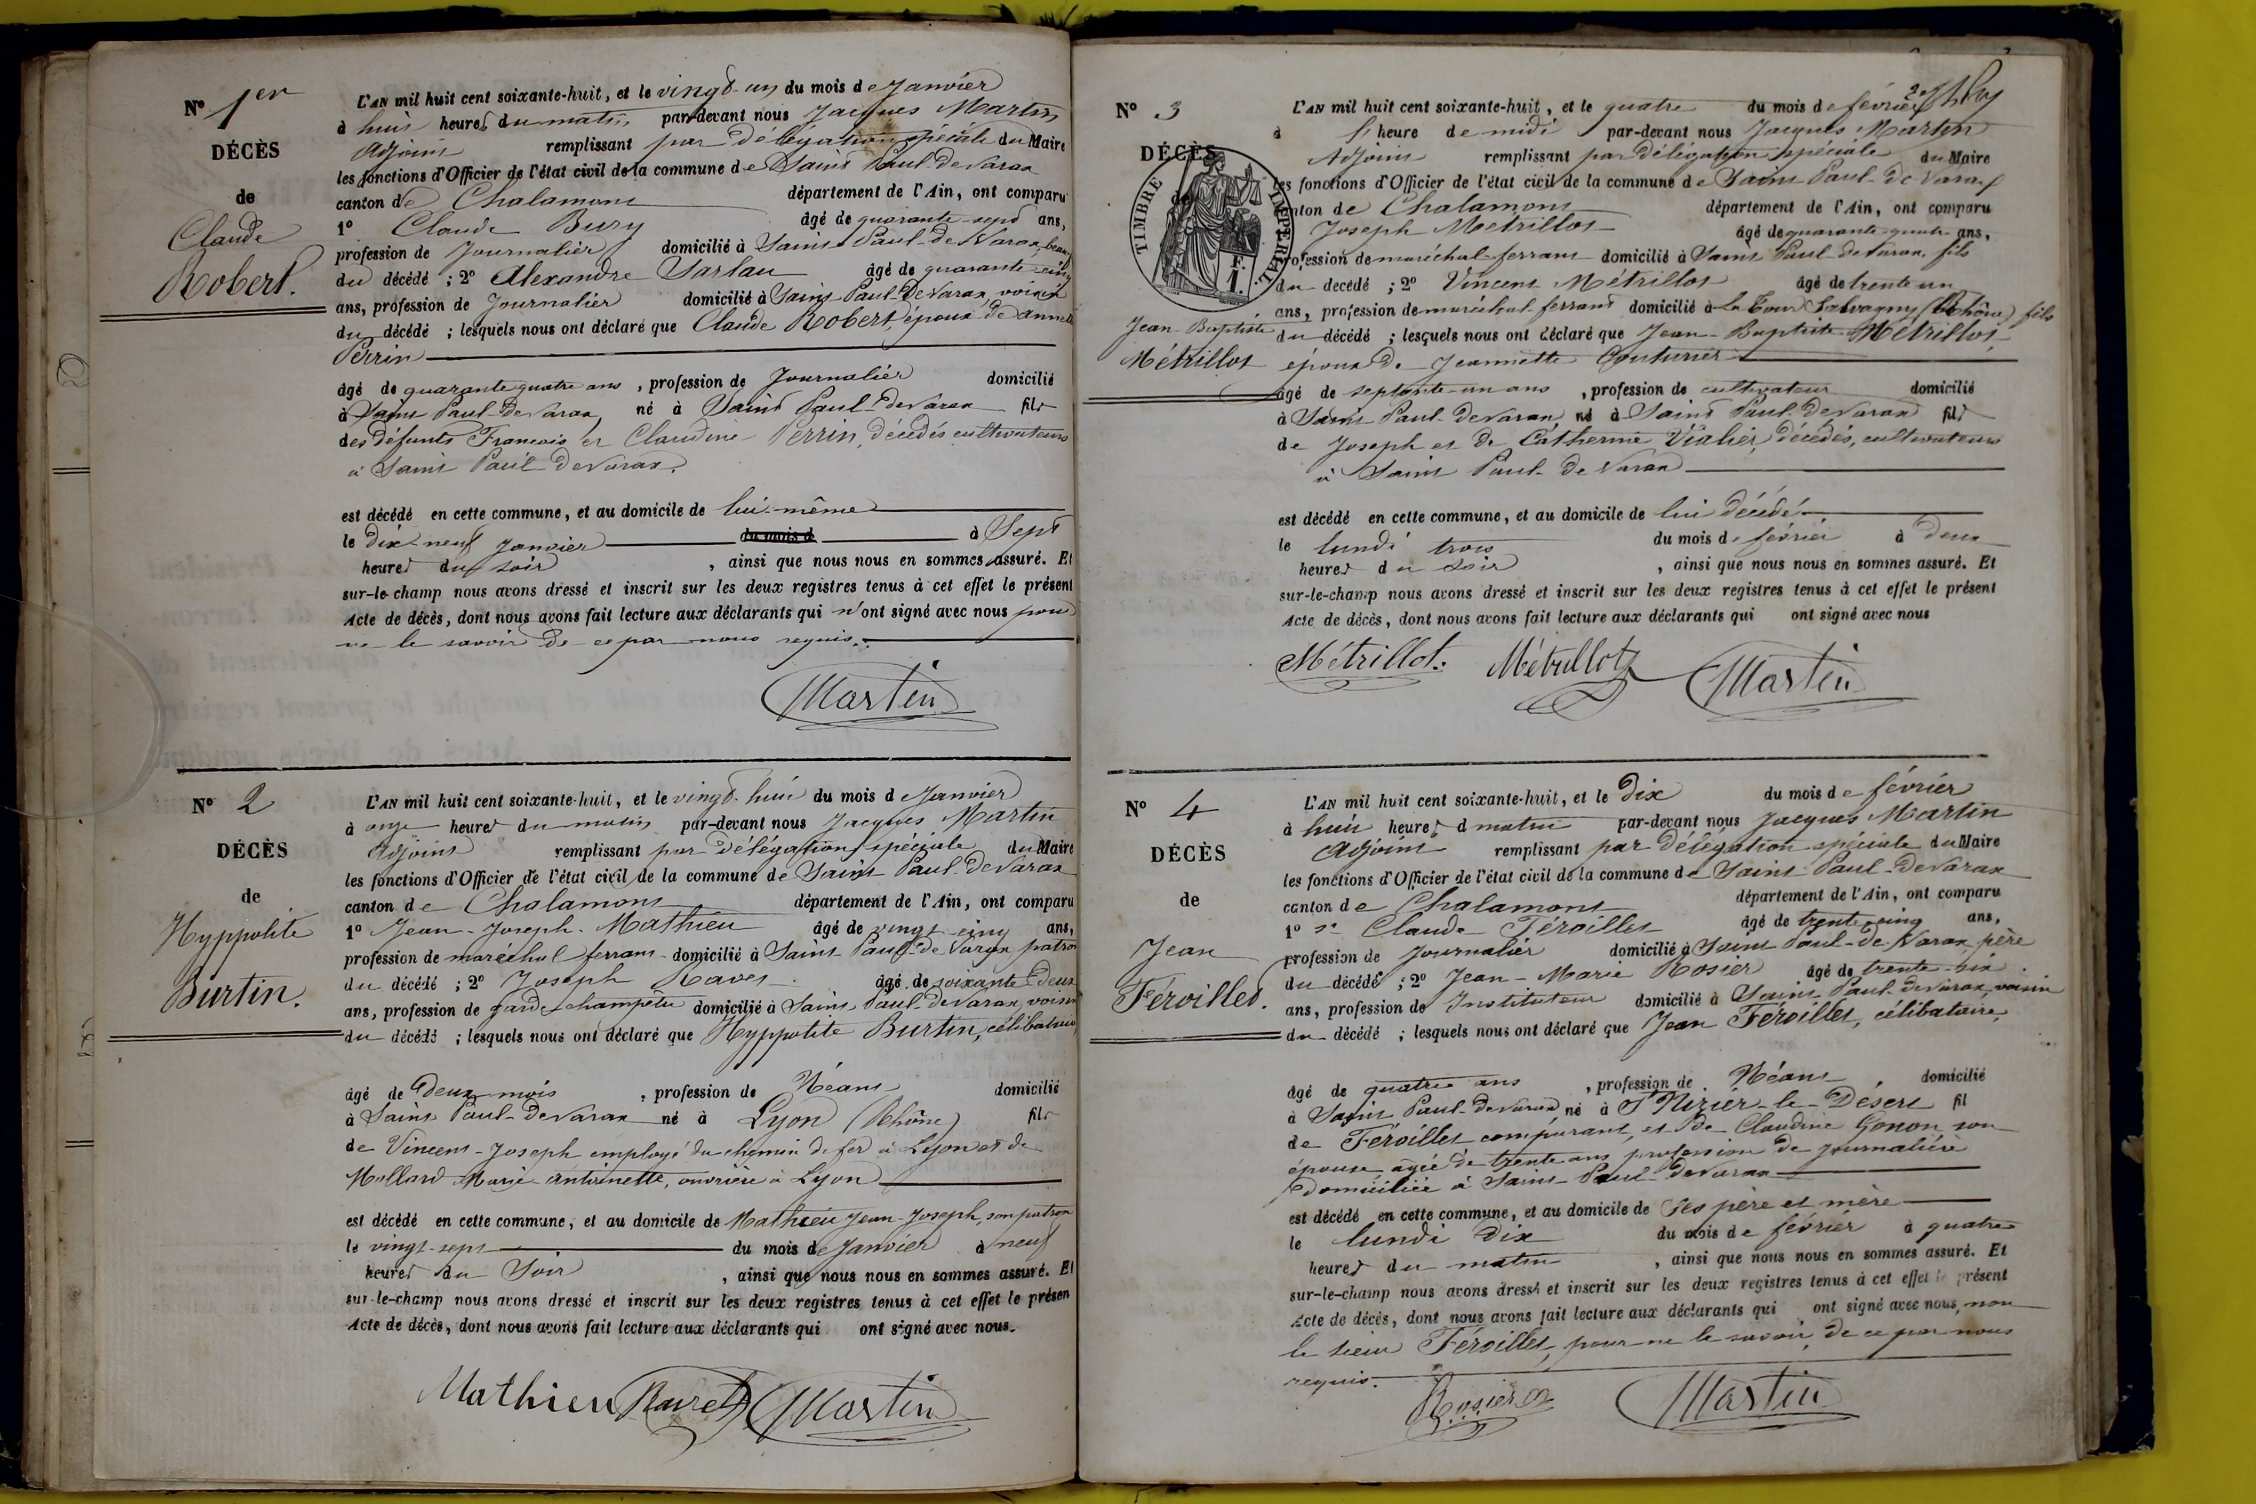 N° 1er
DÉCÈS
de
Claude
Robert.
L'AN mil huit cent soixante-huit, et le vingt-un du mois de Janvier
à huit heures du matin par-devant nous Jacques Martin
Adjoint remplissant par délégation spéciale du Maire
les fonctions d'Officier de l'état civil de la commune de Saint Paul-De Varax
canton de Chalamont département de l'Ain, ont comparu
1° Claude Bury âgé de quarante-sept ans,
profession de Journalier domicilié à Saint Paul-de Varax,
du décédé ; 2° Alexandre Sarlau âgé de quarante-cinq
ans, profession de Journalier domicilié à Saint Paul-De Varax, voisin
du décédé ; lesquels nous ont déclaré que Claude Robert, époux de
Perrin
âgé de quarante quatre ans, profession de Journalier domicilié
à Saint Paul-De Varax, né à Saint Paul-De Varax fils
des défunts François et Claudine Perrin, décédés cultivateurs
à Saint Paul De Varax,
est décédé en cette commune, et au domicile de lui-même
le dix-neuf Janvier du mois d à Sept
heures du soir, ainsi que nous nous en sommes assuré. Et
sur-le-champ nous avons dressé et inscrit sur les deux registres tenus à cet effet le présent
Acte de décès, dont nous avons fait lecture aux déclarants qui n'ont signé avec nous pour
ne le savoir de ce par nous requis.
Martin
N° 2
DÉCÈS
de
Hyppolite
Burtin.
L'AN mil huit cent soixante-huit, et le vingt-huit du mois de Janvier
à onze heures du matin par-devant nous Jacques Martin
Adjoint remplissant par délégation spéciale du Maire
les fonctions d'Officier de l'état civil de la commune de Saint Paul-De Varax
canton de Chalamont département de l'Ain, ont comparu
1° Jean-Joseph-Mathieu âgé de vingt-cinq ans,
profession de maréchal ferrant domicilié à Saint Paul-de Varax patron
du décédé ; 2° Joseph Ravet âgé de soixante deux
ans, profession de garde champêtre domicilié à Saint Paul-De Varax, voisin
du décédé ; lesquels nous ont déclaré que Hyppolite Burtin, célibataire,
âgé de Deux mois, profession de Néant domicilié
à Saint Paul-De Varax né à Lyon (Rhône) fils
de Vincent-Joseph employé du chemin de fer à Lyon et de
Mallard Marie-Antoinette, ouvrière à Lyon
est décédé en cette commune, et au domicile de Mathieu Jean-Joseph, son patron
le vingt-sept du mois de Janvier à neuf
heures du Soir, ainsi que nous nous en sommes assuré. Et
sur-le-champ nous avons dressé et inscrit sur les deux registres tenus à cet effet le présen
Acte de décès, dont nous avons fait lecture aux déclarants qui ont signé avec nous.
Mathieu Ravet Martin
N° 3
DÉCÈS
de
Jean-Baptiste
Métrillot
TIMBRE IMPERIAL
F.
1.
L'AN mil huit cent soixante-huit, et le quatre du mois de février
à 1 heure de midi par-devant nous Jacques Martin
Adjoint remplissant par délégation spéciale du Maire
les fonctions d'Officier de l'état civil de la commune de Saint Paul-De Varax
canton de Chalamont département de l'Ain, ont comparu
Joseph Métrillot âgé de quarante-quatre ans,
profession de maréchal-ferrant domicilié à Saint Paul-De Varax, fils
du décédé ; 2° Vincent Métrillot âgé de trente un
ans, profession de maréchal ferrant domicilié à La Tour Salvagny (Rhône) fils
du décédé ; lesquels nous ont déclaré que Jean-Baptiste Métrillot,
époux de Jeannette Couturier
âgé de septante-un ans, profession de cultivateur domicilié
à Saint Paul-De Varax, né à Saint Paul-De Varax fils
de Joseph et de Catherine Vialier, décédés, cultivateurs
à Saint Paul-De Varax
est décédé en cette commune, et au domicile de lui décédé
le lundi trois du mois de février à deux
heures du soir, ainsi que nous nous en sommes assuré. Et
sur-le-champ nous avons dressé et inscrit sur les deux registres tenus à cet effet le présent
Acte de décès, dont nous avons fait lecture aux déclarants qui ont signé avec nous
Métrillot. Métrillot Martin
N° 4
DÉCÈS
de
Jean
Féroillet.
L'AN mil huit cent soixante-huit, et le Dix du mois de février
à huit heures d matin par-devant nous Jacques Martin
Adjoint remplissant par délégation spéciale du Maire
les fonctions d'Officier de l'état civil de la commune de Saint Paul-De Varax
canton de Chalamont département de l'Ain, ont comparu
1° Claude Féroillet âgé de trente-cinq ans,
profession de Journalier domicilié à Saint Paul-de Varax père
du décédé ; 2° Jean-Marie Rosier âgé de trente-six
ans, profession de Instituteur domicilié à Saint Paul-de Varax, voisin
du décédé ; lesquels nous ont déclaré que Jean Féroillet, célibataire,
âgé de quatre ans, profession de Néant domicilié
à Saint Paul-De Varax né à St Nizier-le-Désert fil
de Féroillet comparant, et de Claudine Gonon son
épouse âgée de trente ans profession de journalière
Domiciliée à Saint-Paul-De Varax
est décédé en cette commune, et au domicile de Ses père et mère
le lundi dix du mois de février à quatre
heures du matin, ainsi que nous nous en sommes assuré. Et
sur-le-champ nous avons dressé et inscrit sur les deux registres tenus à cet effet le présent
Acte de décès, dont nous avons fait lecture aux déclarants qui ont signé avec nous, non
le sieur Féroillet, pour ne le savoir, de ce par nous
requis.
Rosier Martin